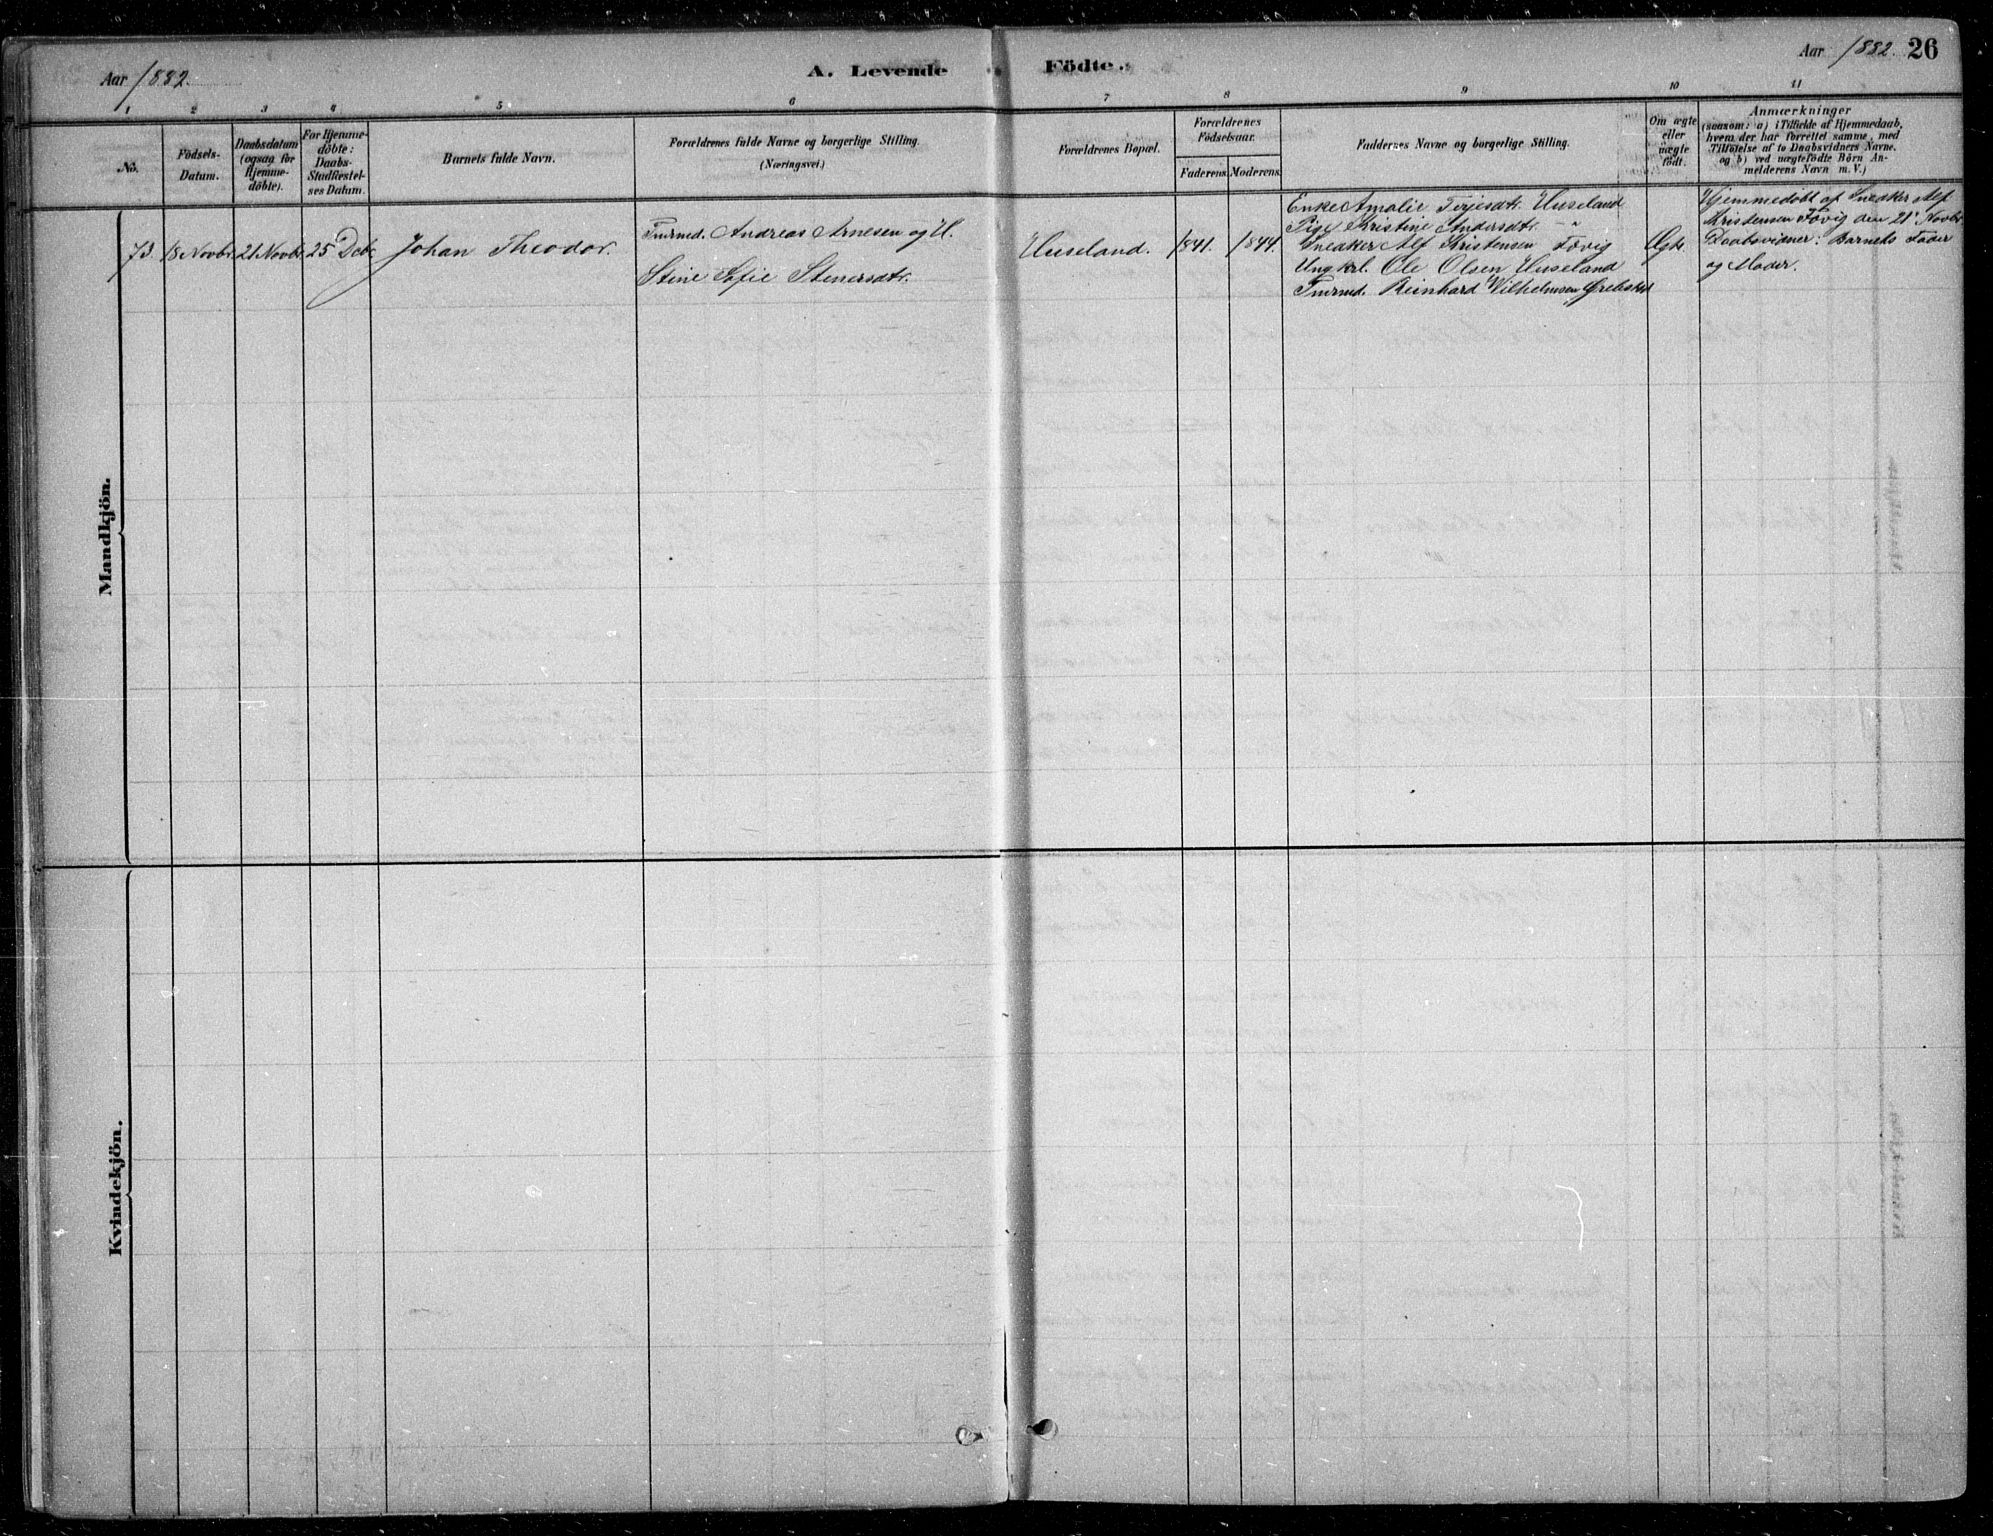 Aar 1882.
A. Levende Födte.
Aar 1882. 26
1 2 3 4 5 6 7 8 9 10 11
No.
Födsels-
Datum.
Daabsdatum
(ogsaa for
Hjemme-
döbte).
For Hjemme-
döbte:
Daabs-
Stadfæstel-
ses Datum.
Barnets fulde Navn.
Forældrenes fulde Navne og borgerlige Stilling.
(Næringsvei.)
Forældrenes Bopæl.
Forældrenes
Födselsaar.
Faderens. Moderens.
Faddernes Navne og borgerlige Stilling.
Om ægte
eller
uægte
födt.
Anmærkninger
(saasom: a) i Tilfælde af Hjemmedaab,
hvem der har forrettet samme, med
Tilföielse af to Daabsvidners Navne.
og b) ved uægtefödte Börn An-
melderens Navn m. V.)
Mandkjön.
73. 18 Novbr. 21 Novbr. 25 Decbr. Johan Theodor.
Tmrmd. Andreas Arnesen og H.
Stine Sofie Stenersdtr.
Huseland. 1841. 1844.
Enke Amalie Terjesdtr. Huseland
Pige Kristine Andersdtr. - "
Snedker Alf Kristensen Fævig
Ung krl. Ole Olsen Huseland
Tmrmd. Reinhard Wilhelmsen
Ægte.
Hjemmedöbt af Snedker Alf
Kristensen Fævig den 21' Novbr.
Daabsvidner: Barnets Fader
og Moder.
Kvindekjön.